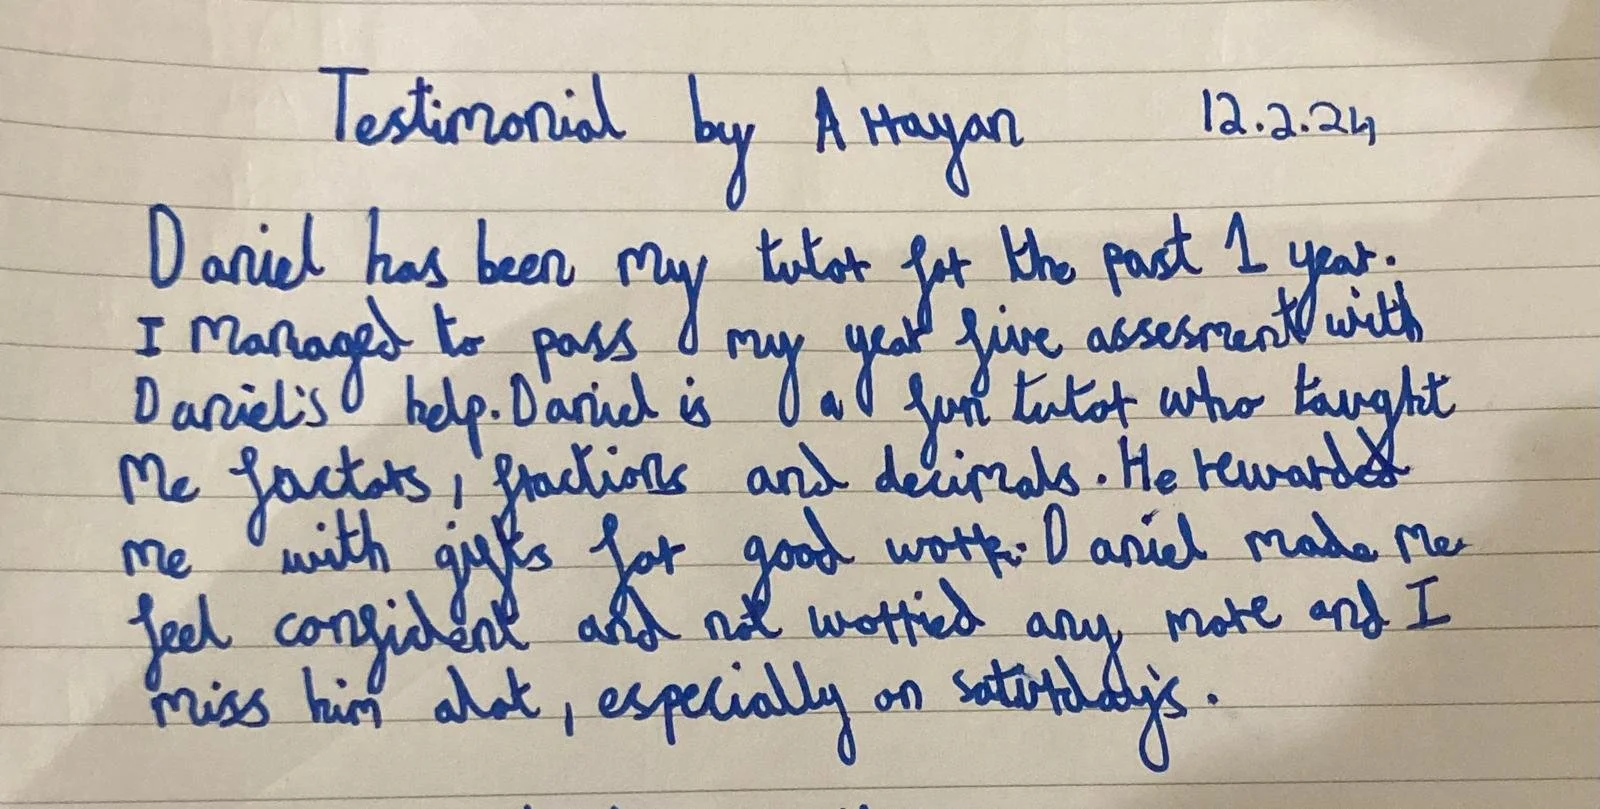 Testimonial by A Hayan 12.2.24
Daniel has been my tutor for the past 1 year.
I managed to pass my year five assesment with
Daniel's help. Daniel is a fun tutor who taught
me factors, fractions and decimals. He rewarded
me with gifts for good work. Daniel made me
feel confident and not worried any more and I
miss him alot, especially on saturday's.